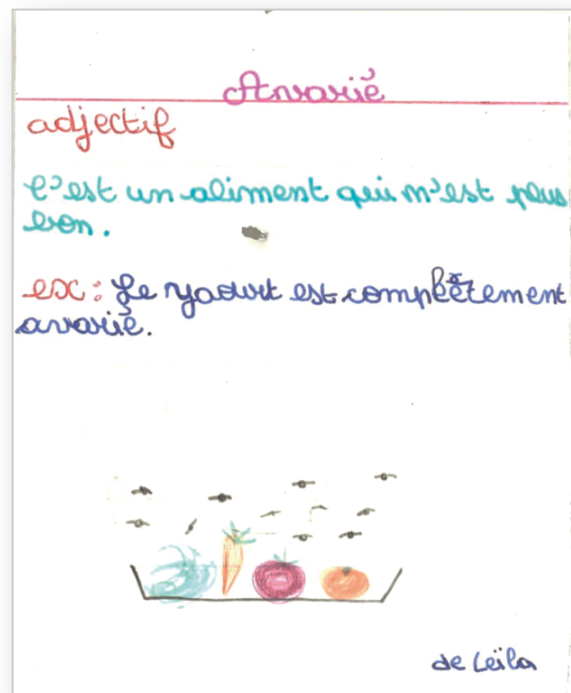 Avarié
adjectif
C'est un aliment qui n'est plus
bon.
ex : Le yaourt est complètement
avarié.
de Leïla